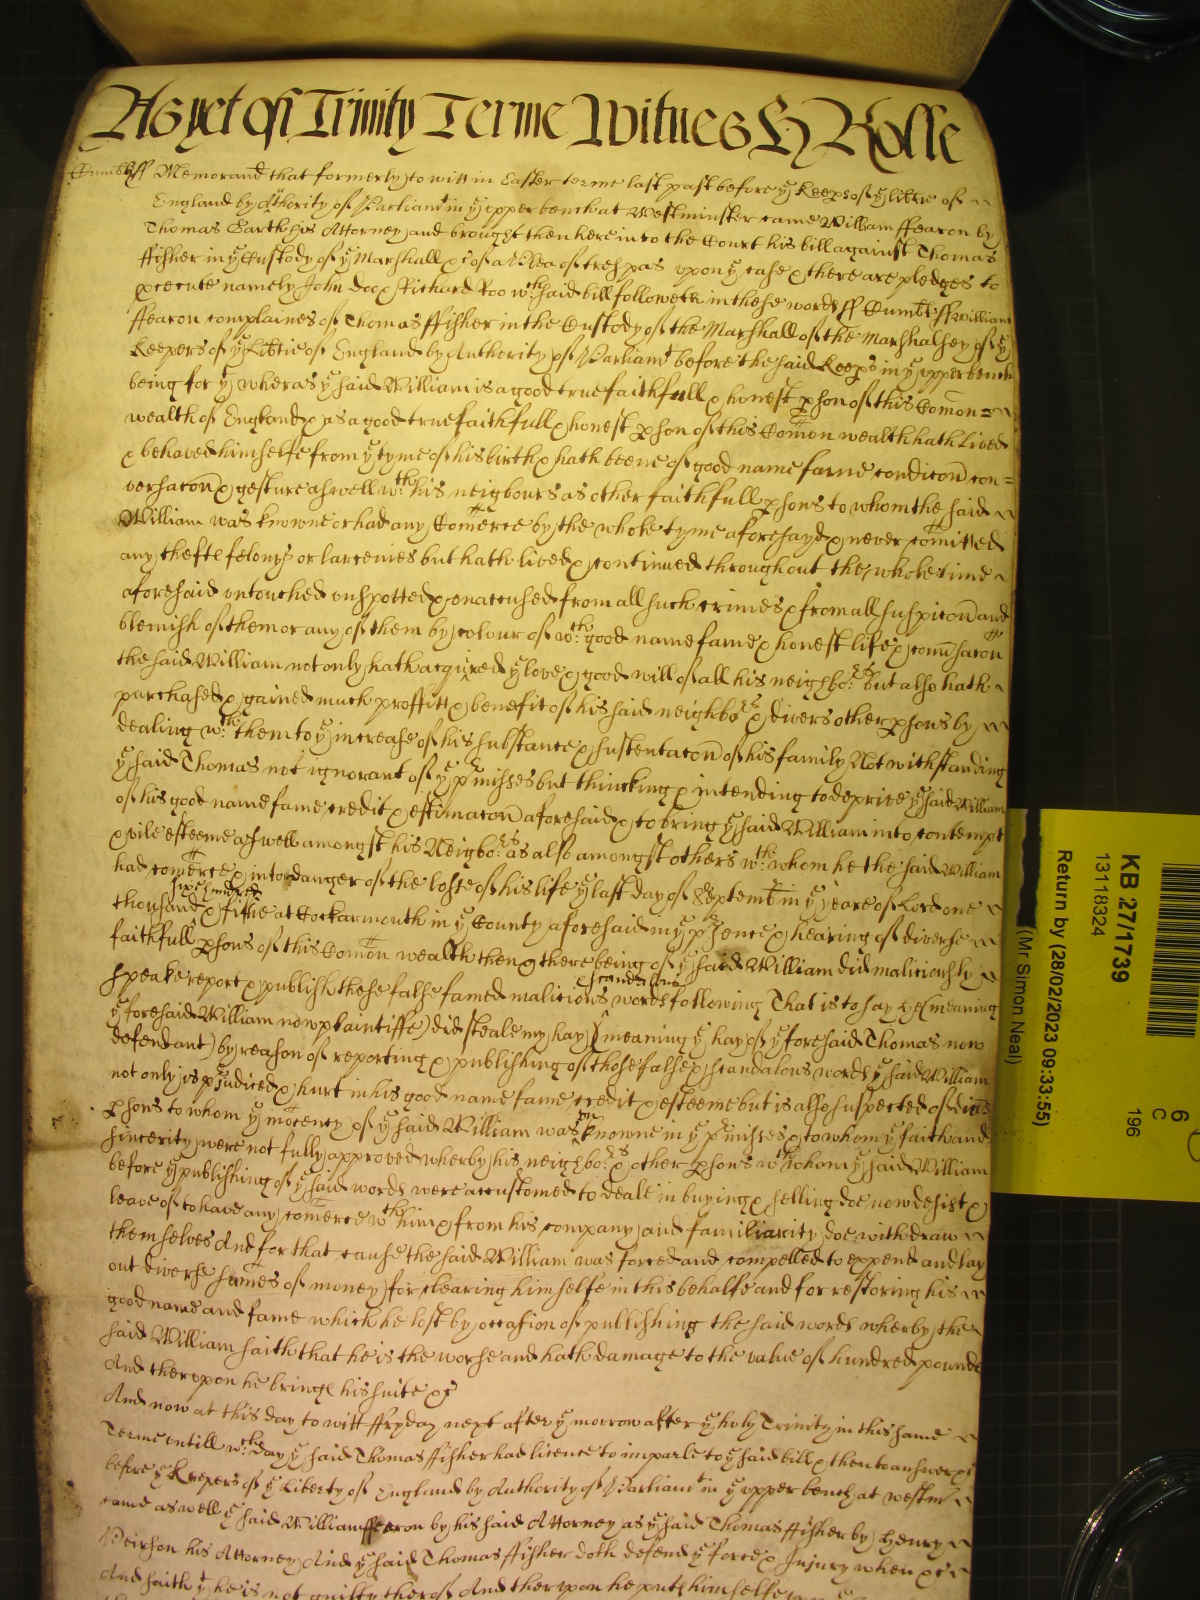 As yet of Trinity Terme Witnes H Rolle
Cumbr ss Memorand that formerly to witt in Easter terme last past before yᵉ Keeps of yᵉ libtie of
England by Authority of Parliamᵗ in yᵉ upper bench at Westminster came William ffearon by
Thomas his Attorney and brought then here into the Court his bill against Thomas
ffisher in yᵉ Custody of yᵉ Marshall &c of a Plea of trespas upon yᵉ case & there are pledges to
psecute namely John Doo & Richard Roo wᶜʰ said bill followeth in these words ss Cumbr ss William
ffearon complaines of Thomas ffisher in the Custody of the Marshall of the Marshalsey of yᵉ
Keepers of yᵉ Libtie of England by Authority of Parliamᵗ before the said Keeps in yᵉ upper bench
being for yᵗ wheras yᵉ said William is a good true faithfull & honest pson of this Comon =
wealth of England & as a good true faithfull & honest pson of this Comon wealth hath lived
& behaved himselfe from yᵉ tyme of his birth & hath beene of good name fame condicon con =
versacon & gesture aswell wᵗʰ his neigbours as other faithfull psons to whom the said
William was knowne or had any Comerce by the whole tyme aforesayd & never comitted
any thefte felonys or larcenies but hath lived & continued throughout the whole time
aforesaid untouched unspotted & unaccused from all such crimes & from all suspicon and
blemish of them or any of them by colour of wᶜʰ good name fame & honest life & convsacon
the said William not only hath acquired yᵉ love & good will of all his neighboʳˢ but also hath
purchased & gained much proffitt & benefit of his said neighboʳˢ & divers other psons by
dealing wᵗʰ them to yᵉ increase of his substance & sustentacon of his family Notwithstanding
yᵉ said Thomas not ignorant of yᵉ pmisses but thincking & intending to deprive yᵉ said William
of his good name fame credit & estimacon aforesaid & to bring yᵉ said William into contempt
& vile esteeme aswell amongst his Neigboʳˢ as also amongst others wᵗʰ whom he the said William
had comerce & into danger of the losse of his life yᵉ last day of Septembr in yᵉ yeare of Lord one
thousand six hundred & fiftie at Cockarmouth in yᵉ County aforesaid in yᵉ psence & hearing of diverse
faithfull psons of this Comon wealth then & there being of yᵉ said William did maliciously
speake report & publish these false famed malicious scandalous words following That is to say He (meaning
yᵉ foresaid William now plaintiffe) did steale my hay (meaning yᵉ hay of yᵉ foresaid Thomas now
defendant) by reason of reporting & publishing of those false & scandalous words yᵉ said William
not only is pjudiced & hurt in his good name fame credit & esteeme but is also suspected of divs
psons to whom yᵉ inocency of yᵉ said William was unknowne in yᵉ pmisses & to whom yᵉ faith and
sincerity were not fully approved wherby his neighboʳˢ & other psons wᵗʰ whom yᵉ said William
before yᵉ publishing of yᵉ said words were accustomed to deale in buying & selling doe now desist &
leave of to have any comerce wᵗʰ him & from his company and familiarity doe withdraw
themselves And for that cause the said William was forced and compelled to expend and lay
out diverse sumes of money for clearing himselfe in this behalfe and for restoring his
good name and fame which he lost by occasion of publishing the said words wherby the
said William saith that he is the worse and hath damage to the value of hundred pounds
And therupon he bringe his suite &c
And now at this day to witt ffryday next after yᵉ morrow after yᵉ holy Trinity in this same
Terme untill wᶜʰ day yᵉ said Thomas ffisher had licence to imparle to yᵉ said bill & then to answer &c
before yᵉ Keepers of yᵉ Liberty of England by Authority of Parliamᵗ in yᵉ upper bench at westmʳ
came aswell yᵉ said William ffearon by his said Attorney as yᵉ said Thomas ffisher by Henry
Peirson his Attorney And yᵉ said Thomas ffisher doth defend yᵉ force & Injury when &c
And saith yᵗ he is not guilty therof And therupon he puts himselfe
KB 27/1739
13118324
Return by (28/02/2023 09:33:55)
(Mr Simon Neal)
6
C
196